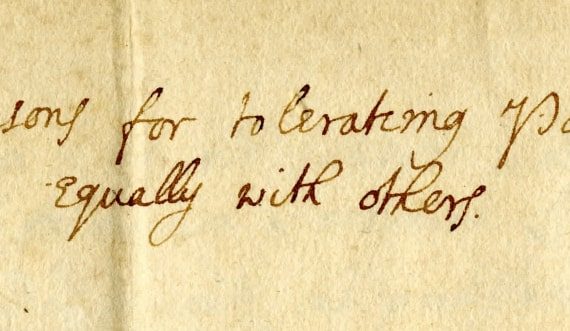 sons for tolerating Pa
Equally with others.